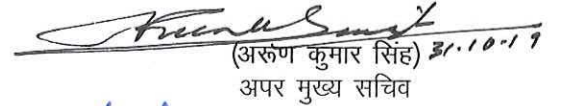 (अरूण कुमार सिंह) 31.10.19
अपर मुख्य सचिव